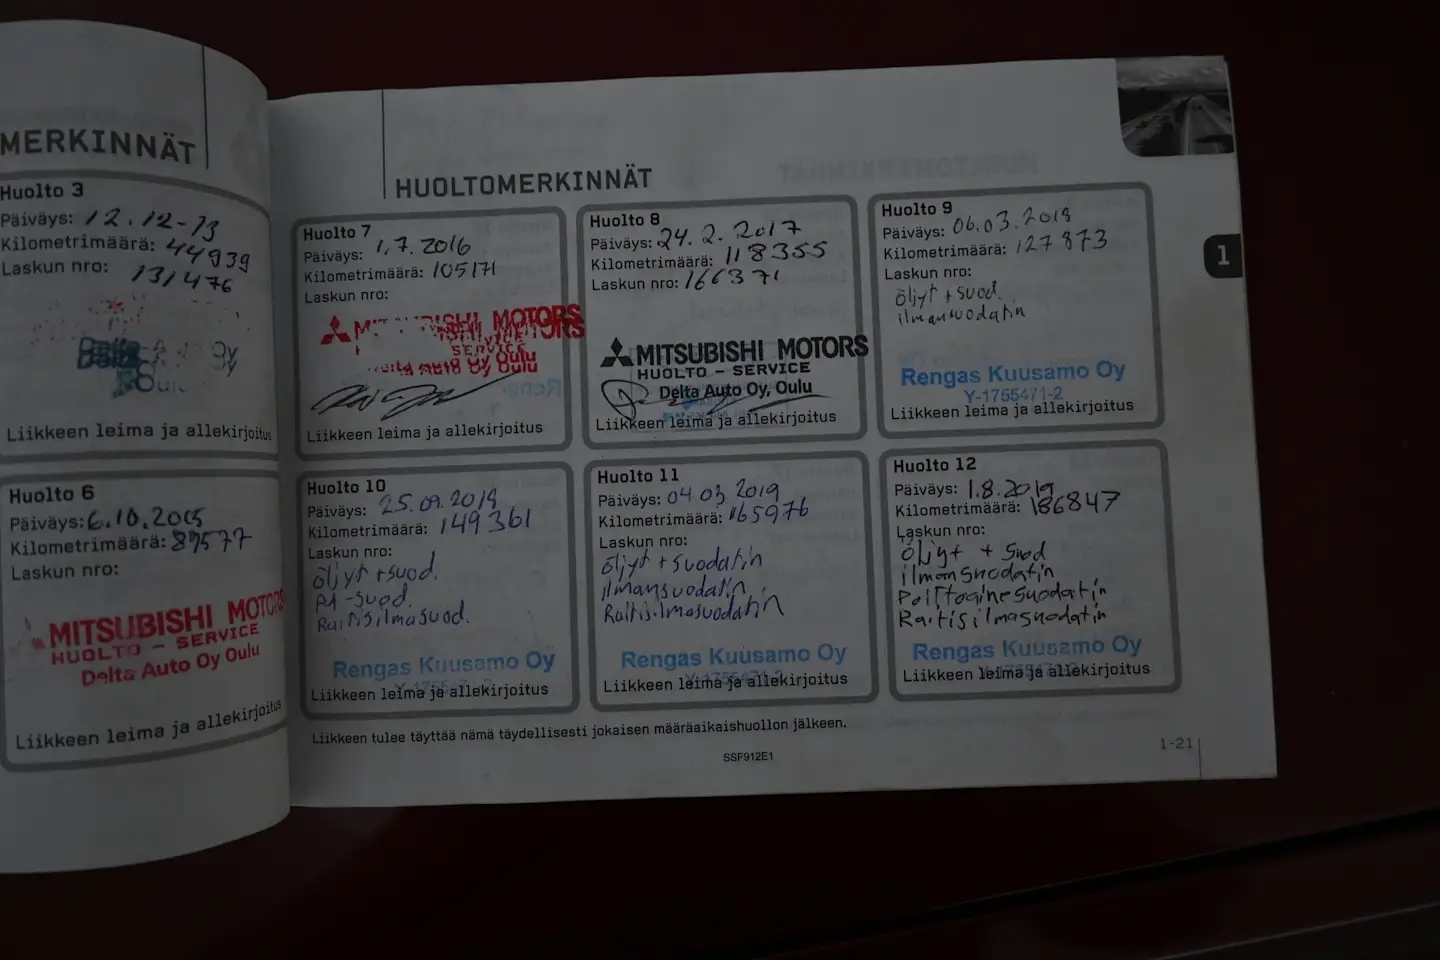 MERKINNÄT
Huolto 3
Päiväys: 12.12-13
Kilometrimäärä: 44939
Laskun nro: 131476
Oulu
Liikkeen leima ja allekirjoitus
Huolto 6
Päiväys: 6.10.2015
Kilometrimäärä: 89577
Laskun nro:
MITSUBISHI MOTORS
HUOLTO - SERVICE
Delta Auto Oy Oulu
Liikkeen leima ja allekirjoitus
HUOLTOMERKINNÄT
Huolto 7
Päiväys: 1.7.2016
Kilometrimäärä: 105171
Laskun nro:
MITSUBISHI MOTORS
SERVICE
Delta Auto Oy Oulu
Liikkeen leima ja allekirjoitus
Huolto 8
Päiväys: 24.2.2017
Kilometrimäärä: 118355
Laskun nro: 166371
MITSUBISHI MOTORS
HUOLTO - SERVICE
Delta Auto Oy, Oulu
Liikkeen leima ja allekirjoitus
Huolto 9
Päiväys: 06.03.2018
Kilometrimäärä: 127873
Laskun nro:
öljyt + suod.
ilmansuodatin
Rengas Kuusamo Oy
Y-1755471-2
Liikkeen leima ja allekirjoitus
Huolto 10
Päiväys: 25.09.2018
Kilometrimäärä: 149361
Laskun nro:
öljyt + suod.
PA-suod.
Raitisilmasuod.
Rengas Kuusamo Oy
Liikkeen leima ja allekirjoitus
Huolto 11
Päiväys: 04.03 2019
Kilometrimäärä: 165976
Laskun nro:
öljyt + suodatin
ilmansuodatin
Raitisilmasuodatin
Rengas Kuusamo Oy
Y-1755471-2
Liikkeen leima ja allekirjoitus
Huolto 12
Päiväys: 1.8.2019
Kilometrimäärä: 186847
Laskun nro:
öljyt + suod
ilmansuodatin
Polttoainesuodatin
Raitisilmasuodatin
Rengas Kuusamo Oy
Y-1755471-2
Liikkeen leima ja allekirjoitus
Liikkeen tulee täyttää nämä täydellisesti jokaisen määräaikaishuollon jälkeen.
SSF912E1
1-21
1